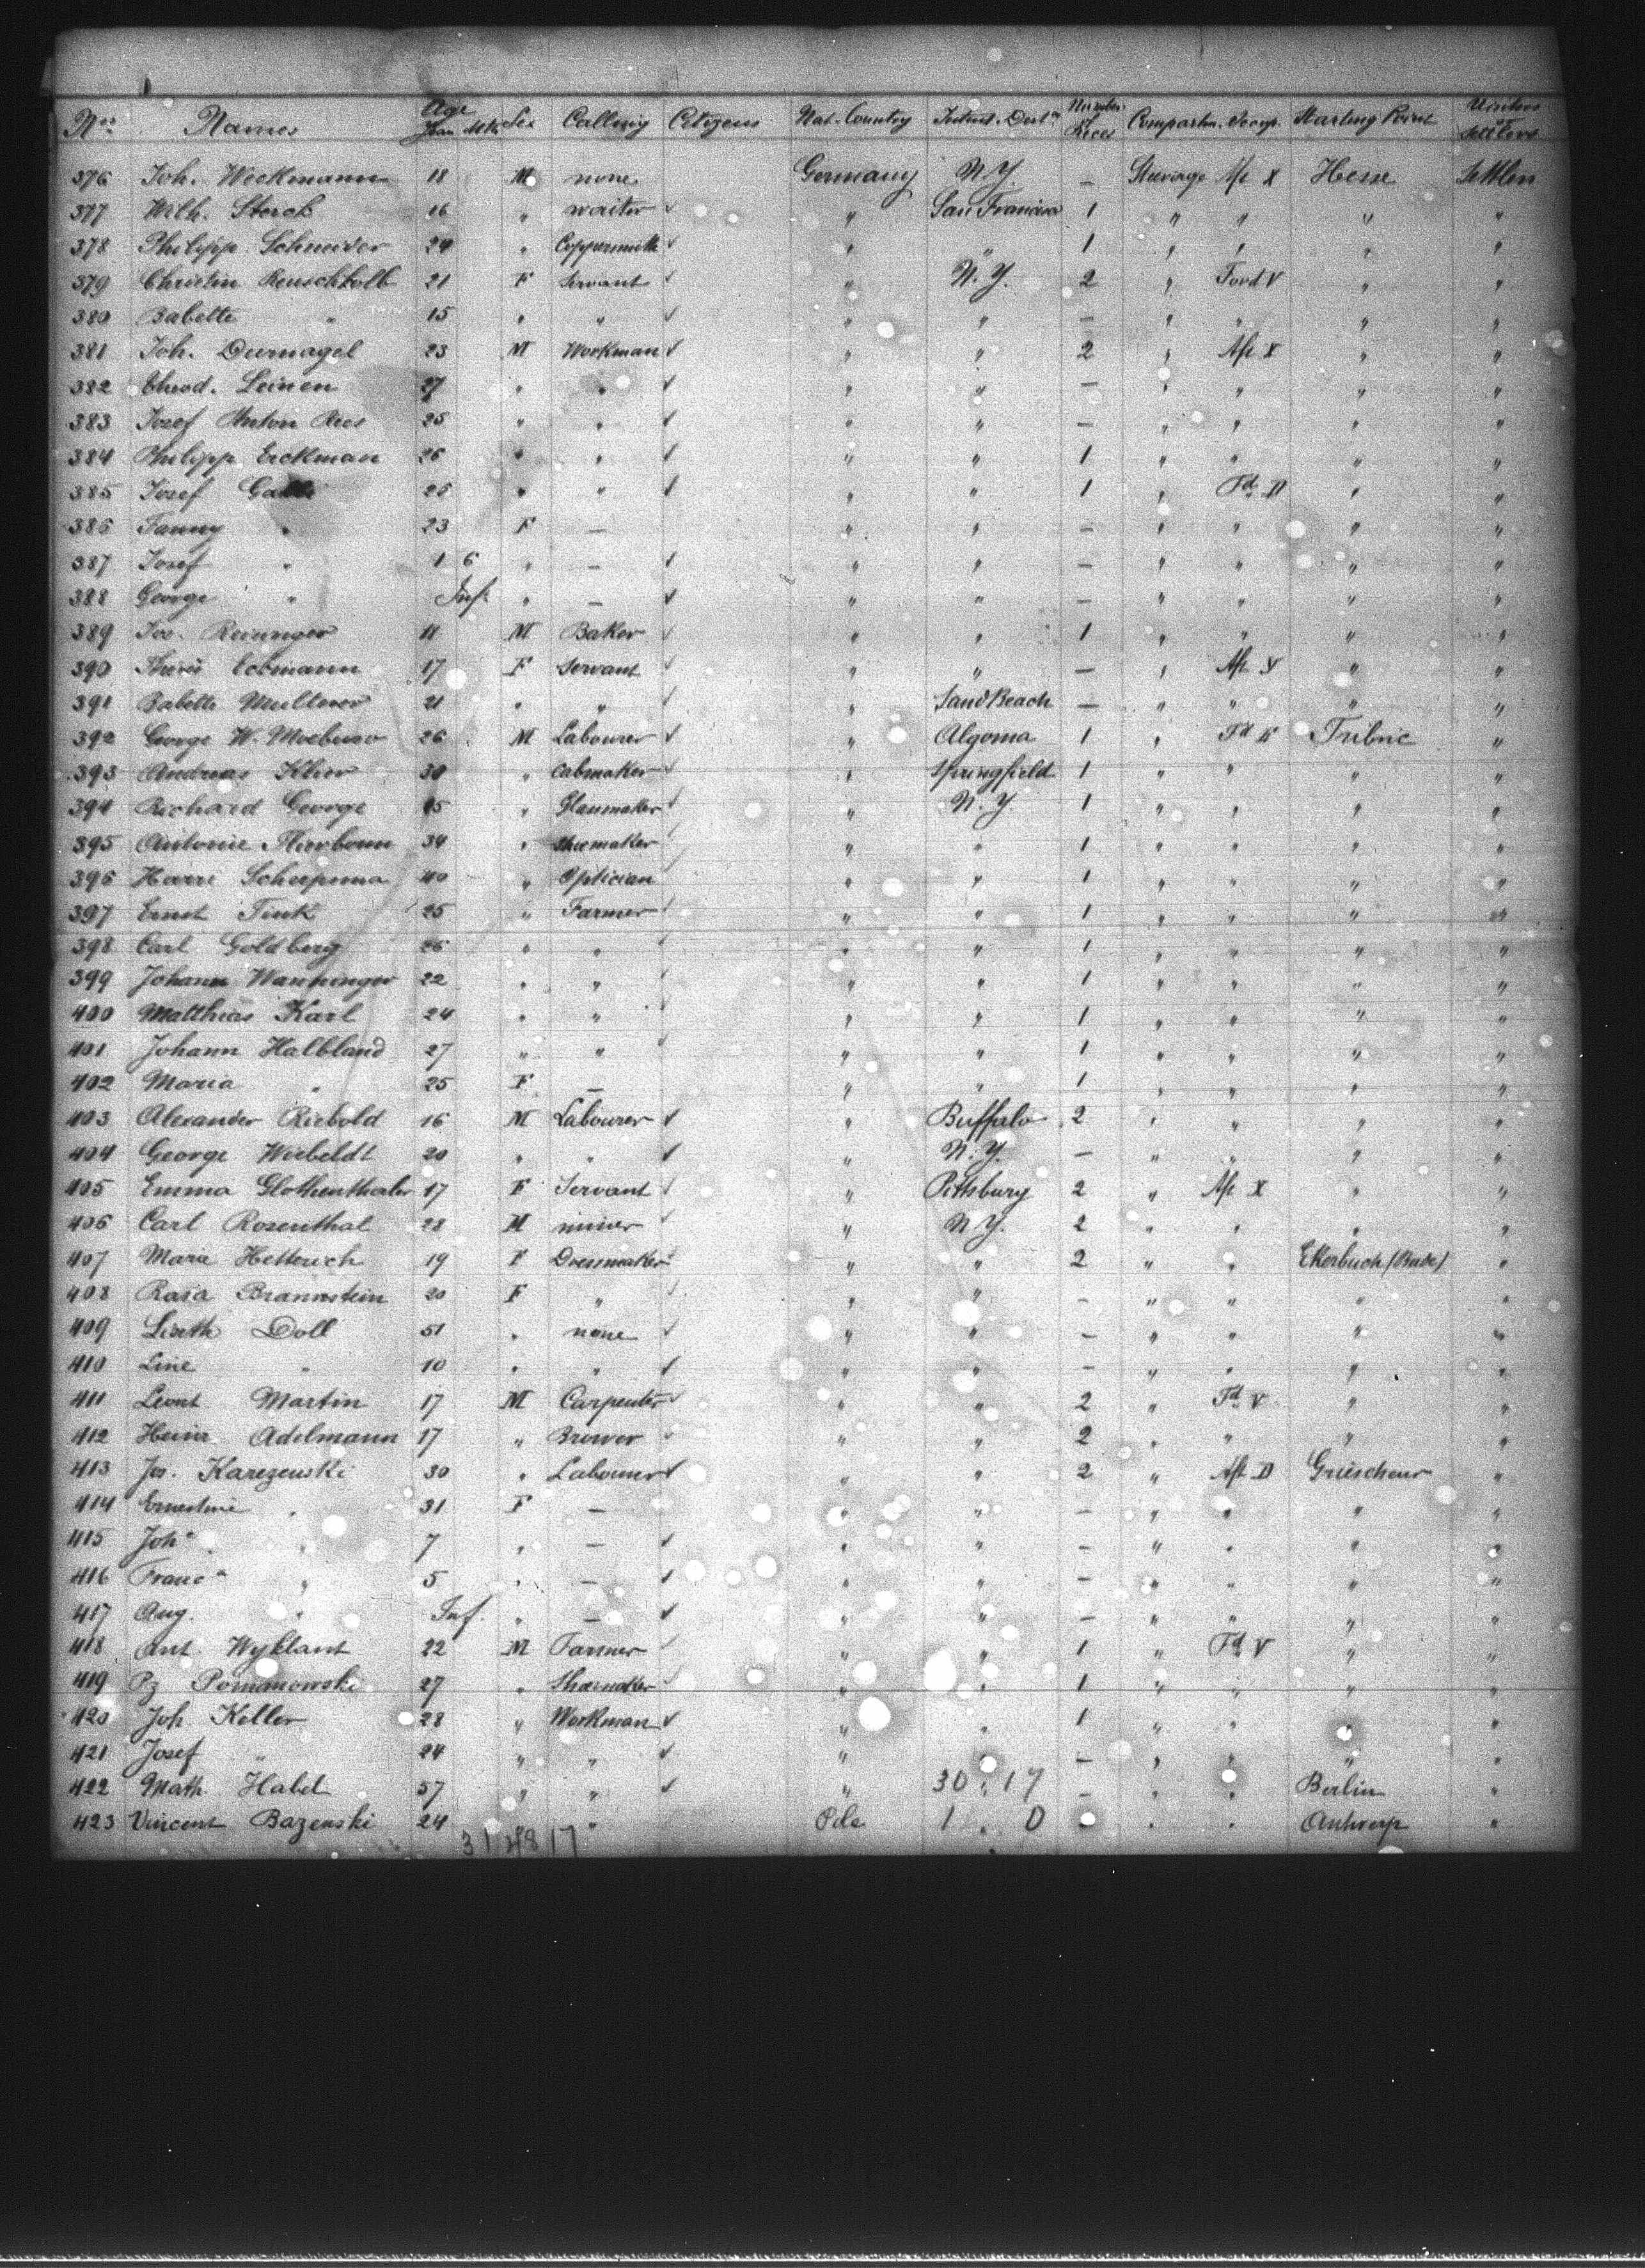 Nos. Names Age Years Mths Sex Calling Citizens Nat. Country Intent. Destn Number of Pieces Compartm. Starting Point Settlers
376 Joh. Weckmann 18 M none Germany N.Y. — Steerage Aft X Hesse Settlers
377 Wilh. Storck 16 " waiter ✓ " San Francisco 1 " " " "
378 Philipp Schneider 24 " Coppersmith ✓ " " 1 " " " "
379 Christin Reuschkolb 21 F Servant ✓ " N.Y. 2 " Ford V " "
380 Babette " 15 " " ✓ " " — " " " "
381 Joh. Durnagel 23 M Workman ✓ " " 2 " Aft X " "
382 Leinen 27 " " ✓ " " — " " " "
383 Josef Anton Rees 25 " " ✓ " " — " " " "
384 Philipp Erckman 26 " " ✓ " " 1 " " " "
385 Josef 25 " " ✓ " " 1 " Fd II " "
386 Fanny " 23 F — " " — " " " "
387 Josef " 1 6 " — ✓ " " — " " " "
388 George " Inf. " — ✓ " " — " " " "
389 Jos. Reisinger M Baker ✓ " " 1 " " " "
390 17 F Servant ✓ " " — " Aft " "
391 Babette Multerer 21 " " ✓ " Sand Beach — " " " "
392 George W. 26 M Labourer ✓ " Algoma 1 " Fd " Tribnic "
393 Andreas Klier 30 " Cabmaker ✓ " Springfield 1 " " " "
394 Richard George " Glassmaker ✓ " N.Y. 1 " " " "
395 Antonie 34 " Shoemaker " " 1 " " " "
396 Harri Scheepsma 40 " Optician " " 1 " " " "
397 Ernst Fink 25 " Farmer ✓ " " 1 " " " "
398 Carl Goldberg 26 " " ✓ " " 1 " " " "
399 Johann Wanninger 22 " " ✓ " " 1 " " " "
400 Matthias Karl 24 " " ✓ " " 1 " " " "
401 Johann Halbland 27 " " ✓ " " 1 " " " "
402 Maria " 25 F — " " 1 " " " "
403 Alexander Riebold 16 M Labourer ✓ " Buffalo 2 " " " "
404 George Wiebeldt 20 " " ✓ " N.Y. — " " " "
405 Emma Glothenthaler 17 F Servant ✓ " Pittsburg 2 " Aft X " "
406 Carl Rosenthal 28 M miner ✓ " N.Y. 2 " " " "
407 Marie Hetterich 19 F Dressmaker " " 2 " " "
408 Rosa Brannstein 20 F " ✓ " " — " " " "
409 Liseth Doll 51 " none ✓ " " — " " " "
410 Line " 10 " " ✓ " " — " " " "
411 Martin 17 M Carpenter ✓ " " 2 " Fd V " "
412 Heinr. Adelmann 17 " Brewer ✓ " " 2 " " " "
413 Jos. Karezenski 30 " Labourer ✓ " " 2 " Aft II "
414 Ernestine " 31 F — " " — " " " "
415 Joha " 7 " — ✓ " " — " " " "
416 Franca " 5 " — ✓ " " — " " " "
417 Aug. " Inf. " — ✓ " " — " " " "
418 Ant. Wyklant 22 M Farmer ✓ " " 1 " Fd V " "
419 27 " Shoemaker ✓ " " 1 " " " "
420 Joh Keller 28 " Workman ✓ " " 1 " " " "
421 Josef " 24 " " ✓ " — " " " "
422 Math. Habel 57 " " ✓ " 30 . 17 — " " Berlin "
423 Vincent Bazenski 24 " Pole 1 . 0 " " Antwerp "
31 48 17